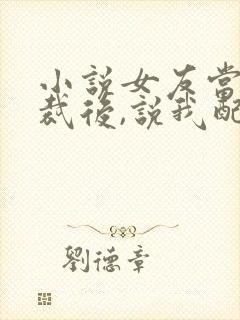 小說女友當
裁後,說我配
劉德章